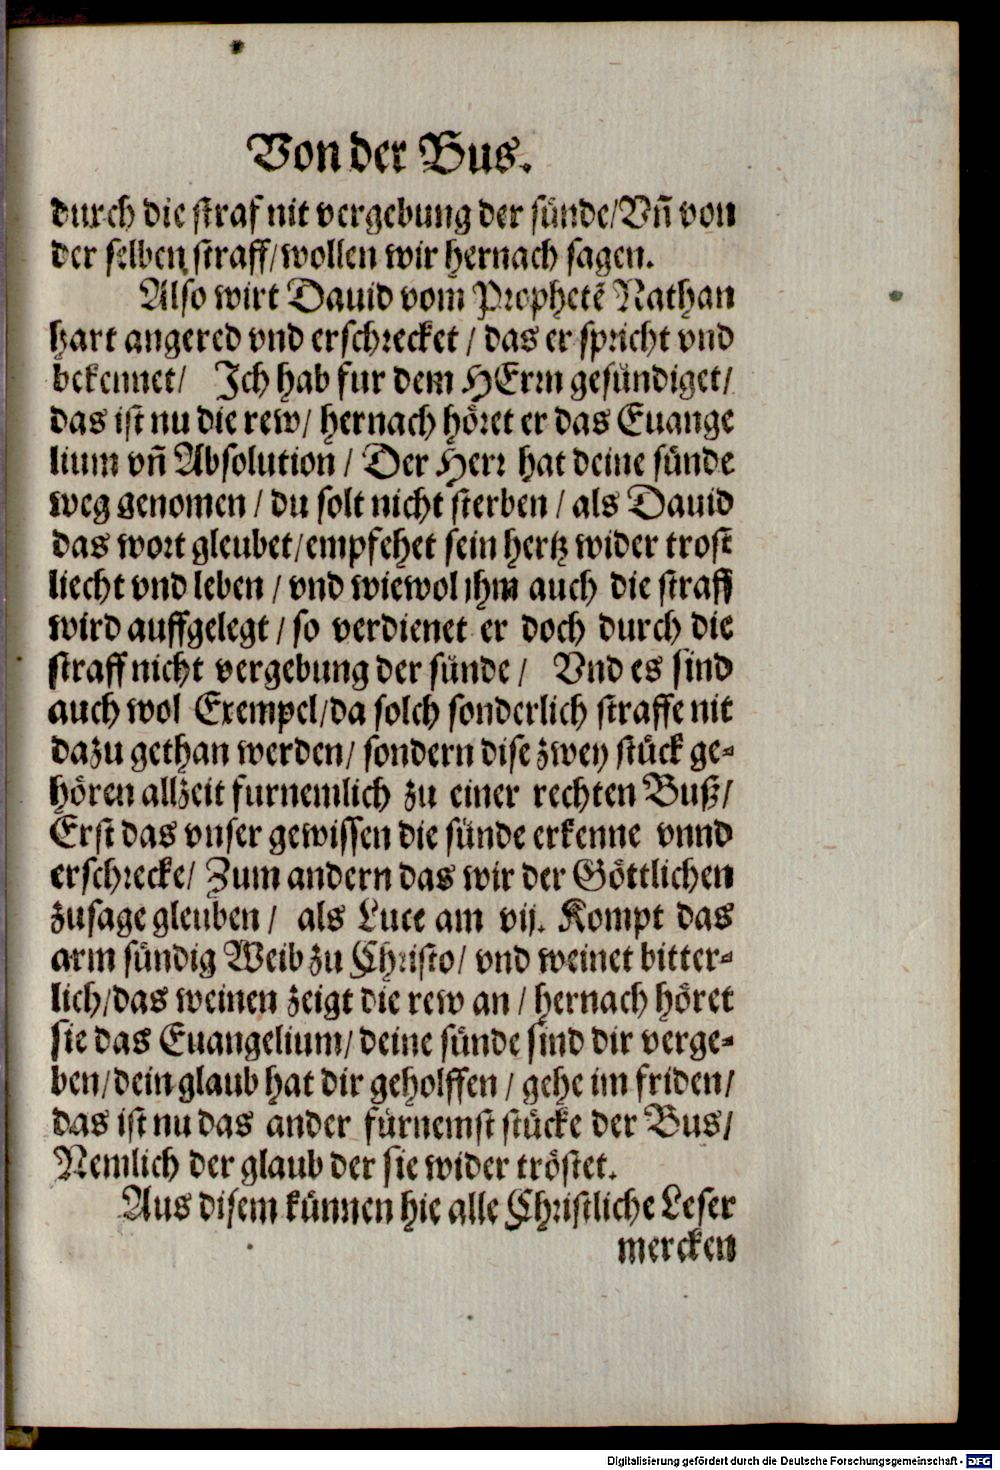 Von der Bus.
durch die straf nit vergebung der sünde/Vn̄ von
der selben straff/wollen wir hernach sagen.
Also wirt Dauid vom Prophetē Nathan
hart angered vnd erschrecket / das er spricht vnd
bekennet/ Ich hab fur dem HErrn gesündiget/
das ist nu die rew/ hernach höret er das Euange
lium vn̄ Absolution / Der Herr hat deine sünde
weg genomen / du solt nicht sterben / als Dauid
das wort gleubet/empfehet sein hertz wider trost
liecht vnd leben / vnd wiewol ihm auch die straff
wird auffgelegt / so verdienet er doch durch die
straff nicht vergebung der sünde / Vnd es sind
auch wol Exempel/da solch sonderlich straffe nit
dazu gethan werden/ sondern dise zwey stück ge-
hören allzeit furnemlich zu einer rechten Buß/
Erst das vnser gewissen die sünde erkenne vnnd
erschrecke/ Zum andern das wir der Göttlichen
zusage gleuben / als Luce am vij. Kompt das
arm sündig Weib zu Christo/ vnd weinet bitter-
lich/das weinen zeigt die rew an / hernach höret
sie das Euangelium/ deine sünde sind dir verge-
ben/dein glaub hat dir geholffen / gehe im friden/
das ist nu das ander fürnemst stücke der Bus/
Nemlich der glaub der sie wider tröstet.
Aus disem künnen hie alle Christliche Leser
mercken
Digitalisierung gefördert durch die Deutsche Forschungsgemeinschaft - DFG